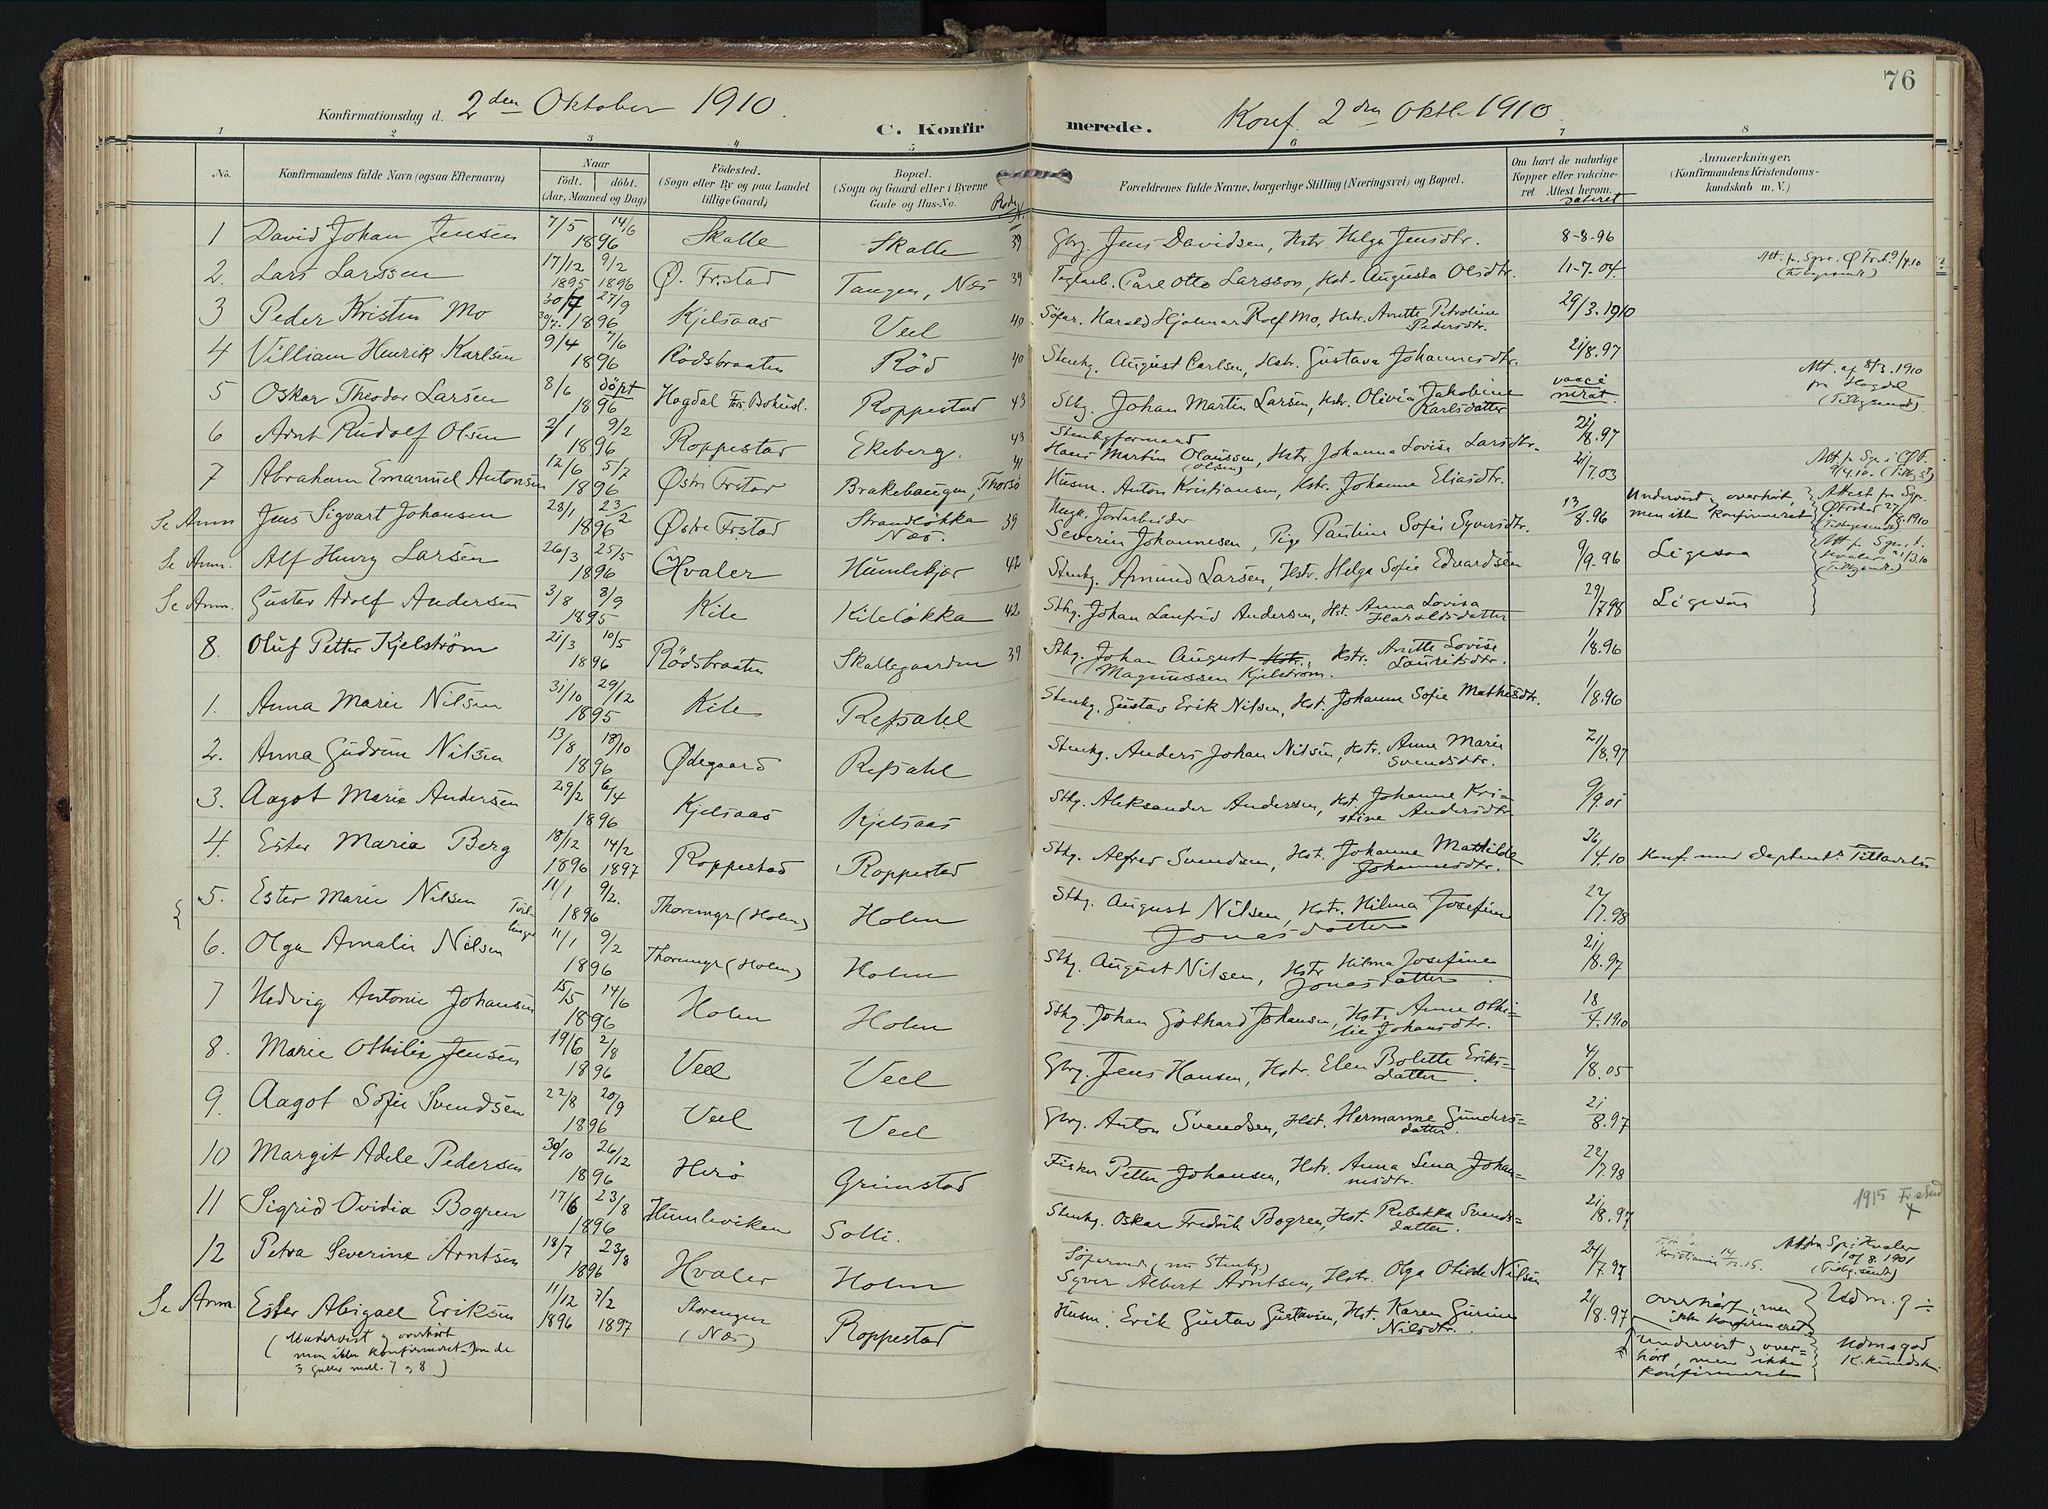 76
Konfirmationsdag d. 2den Oktober 1910.
C. Konfirmerede.
Konf. 2den Oktb. 1910.
1 2 3 4 5 6 7 8
No. Konfirmandens fulde Navn (ogsaa Efternavn) Naar født. døbt. (Aar, Maaned og Dag) Födested. (Sogn eller By og paa Landet tillige Gaard) Bopæl. (Sogn og Gaard eller i Byerne Gade og Hus-No. Forældrenes fulde Navne, borgerlige Stilling (Næringsvei) og Bopæl. Om havt de naturlige Kopper eller vaccineret Attest herom. dateret Anmærkninger. (Konfirmandens Kristendomskundskab m. V.)
1 David Johan Jensen 7/5 14/6 1896 Skalle Skalle 39 Gbrg. Jens Davidsen, Hstr. Helga Jensdtr. 8-8-96
2. Lars Larssen 17/12 1895 9/2 1896 Ø. Frstad Tangen, Næs 39 Teglarb. Carl Otto Larsson, Hst. Augusta Olsdtr. 11-7.04
3 Peder Kristen Mo 30/7 27/9 1896 Kjelsaas Veel 40 Søfar. Harald Hjalmar Rolf Mo, Hstr. Anette Petroline Pedersdtr. 29/3.1910
4 Villiam Henrik Karlsen 9/4 7/6 1896 Rødsbraaten Rød 40 Stenhg. August Carlsen, Hstr. Gustava Johannesdtr. 21/8.97
5 Oskar Theodor Larsen 8/6 döpt 1896 Hogdal Bohusl. Roppestad 43 Sthg. Johan Martin Larsen, Hstr. Olivia Jakobine Karlsdatter vaccinerat. Att. af 8/3.1910 fr Hogdal
6 Arnt Rudolf Olsen 2/1 9/2 1896 Roppestad Ekeberg. 43 Stenhgformand Hans Martin Olaussen (Olsen), Hstr. Johanna Lovise Larsdtr. 21/8.97
7 Abraham Emanuel Antonsen 12/6 5/7 1896 Østre Frstad Brakehaugen, Thorsø 41 Husm. Anton Kristiansen, Hstr. Johanne Eliasdtr. 21/7.03
Se Anm Jens Sigvart Johansen 28/1 23/2 1896 Østre Frstad Strandløkka Næs. 39 Ungk. Jordarbeider Severin Johannesen, Pige Pauline Sofie Syversdtr. 13/8.96 Undervist og overhørt, men ikke konfirmeret
Se Anm. Alf Henry Larsen 26/3 25/5 1896 Hvaler Humlekjær 42 Stenhg. Amund Larsen, Hstr. Helga Sofie Edvardsen 9/9.96 Ligesaa
Se Anm. Gustav Adolf Andersen 3/8 8/9 1895 Kile Kileløkka 42 Sthg. Johan Lanfrid Andersen, Hst. Anna Lovisa Haraldsdatter 29/7.98 Ligesaa
8. Oluf Petter Kjelstrøm 21/3 10/5 1896 Rødsbraaten Skallegaarden 39 Sthg. Johan August Magnussen Kjelstrøm. Hstr. Anette Lovise Lauritsdtr. 1/8.96
1. Anna Marie Nilsen 31/10 29/12 1895 Kile Refsahl Stenhg. Gustav Erik Nilsen, Hst. Johanne Sofie Mathisdtr. 1/8.96
2. Anna Gudrun Nilsen 13/8 18/10 1896 Ødegaard Refsahl Stenhg. Anders Johan Nilsen, Hstr. Anne Marie Svendsdtr. 21/8.97
3. Aagot Marie Andersen 29/2 6/4 1896 Kjelsaas Kjelsaas Sthg. Aleksander Andersen, Hst. Johanne Kristine Andersdtr 9/9.01
4. Ester Maria Berg 18/12 1896 14/2 1897 Roppestad Roppestad Sthg. Alfred Svendsen, Hst. Johanne Mathilde Johannesdtr. 26/4.10 Konf. med Deptents Tilladelse
5. Ester Marie Nilsen Tvillinger 11/1 9/2. 1896 Thoremyr (Holm) Holm Sthg. August Nilsen, Hstr. Hilma Josefine Jonasdatter 22/7.98
6. Olga Amalie Nilsen 11/1 9/2 1896 Thoremyr (Holm) Holm Sthg. August Nilsen, Hstr Hilma Josefine Jonasdatter 21/8.97
7 Hedvig Antonie Johansen 15/5 14/6 1896 Holm Holm Sthg. Johan Gothard Johansen, Hst. Anne Othilie Johansdtr. 18/4.1910
8. Marie Othilie Jensen 19/6 2/8 1896 Veel Veel Gbrg. Jens Hansen, Hstr. Elen Bolette Eriksdatter. 4/8.05
9. Aagot Sofie Svendsen 22/8 20/9 1896 Veel Veel Gbrg. Anton Svendsen, Hst. Hermanne Gundersdatter. 21/8.97
10 Margit Adele Pedersen 30/10 26/12 1896 Herø Grimstad Fisker Petter Johansen, Hstr. Anna Lena Johannesdtr. 22/7.98
11 Sigrid Ovidia Bogren 17/6 23/8 1896 Humleviken Solli. Stenhg. Oskar Fredrik Bogren, Hst. Rebekka Svendsdatter. 21/8.97 1915
12 Petra Severine Arntsen 18/7 23/8 1896 Hvaler Holm Søfarend. (nu Stenhg.) Syver Albert Arntsen, Hstr. Olga Otilde Nilsen 24/7.97
Se Anm. Ester Abigael Eriksen 11/12 1896 7/2 1897 Storengen (Næs) Roppestad Husm. Erik Gustav Gustavsen, Hst. Karen Gurine Nilsdtr. 21/8.97 overhørt, men ikke konfirmeret
(Undervist og overhørt men ikke konfirmeret som de 3 gutter mell. 7 og 8)
undervist og overhørt, men ikke konfirmeret Udmsgod K.kundsk.